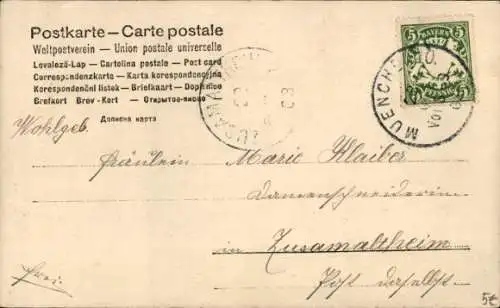 Postkarte - Carte postale
Weltpostverein - Union postale universelle
Levelező-Lap - Cartolina postale - Post card
Correspondenzkarte - Karta korespondencyjna
Korespondenční lístek - Briefkaart - Dopisnice
Brefkort - Brev-Kort - Открытое письмо
Дописна карта
5 BAYERN 5
PFENNIG
MUENCHEN
ZUSAMALTHEIM
Wohlgeb.
Fräulein Marie Klaiber
Damenschneiderin
in Zusamaltheim
Post daselbst.
frei.
5€